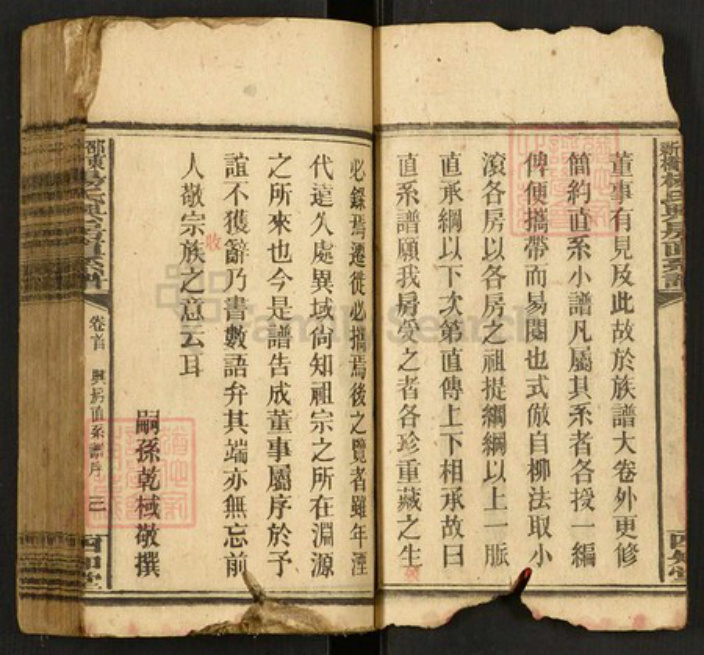 董事有見及此故於族譜大卷外更修
簡約直系小譜凡屬其系者各授一編
俾便攜帶而易閱也式倣自柳法取小
滾各房以各房之祖提綱綱以上一脈
直承綱以下次第直傳上下相承故曰
直系譜願我房受之者各珍重藏之生
必錄焉遷徙必攜焉後之覽者雖年湮
代遠久處異域尚知祖宗之所在淵源
之所來也今是譜告成董事屬序於予
誼不獲辭乃書數語弁其端亦無忘前
人敬宗族之意云耳
收
嗣孫乾棫敬撰
卷首
興房直系譜序
三
四知堂
FamilySearch